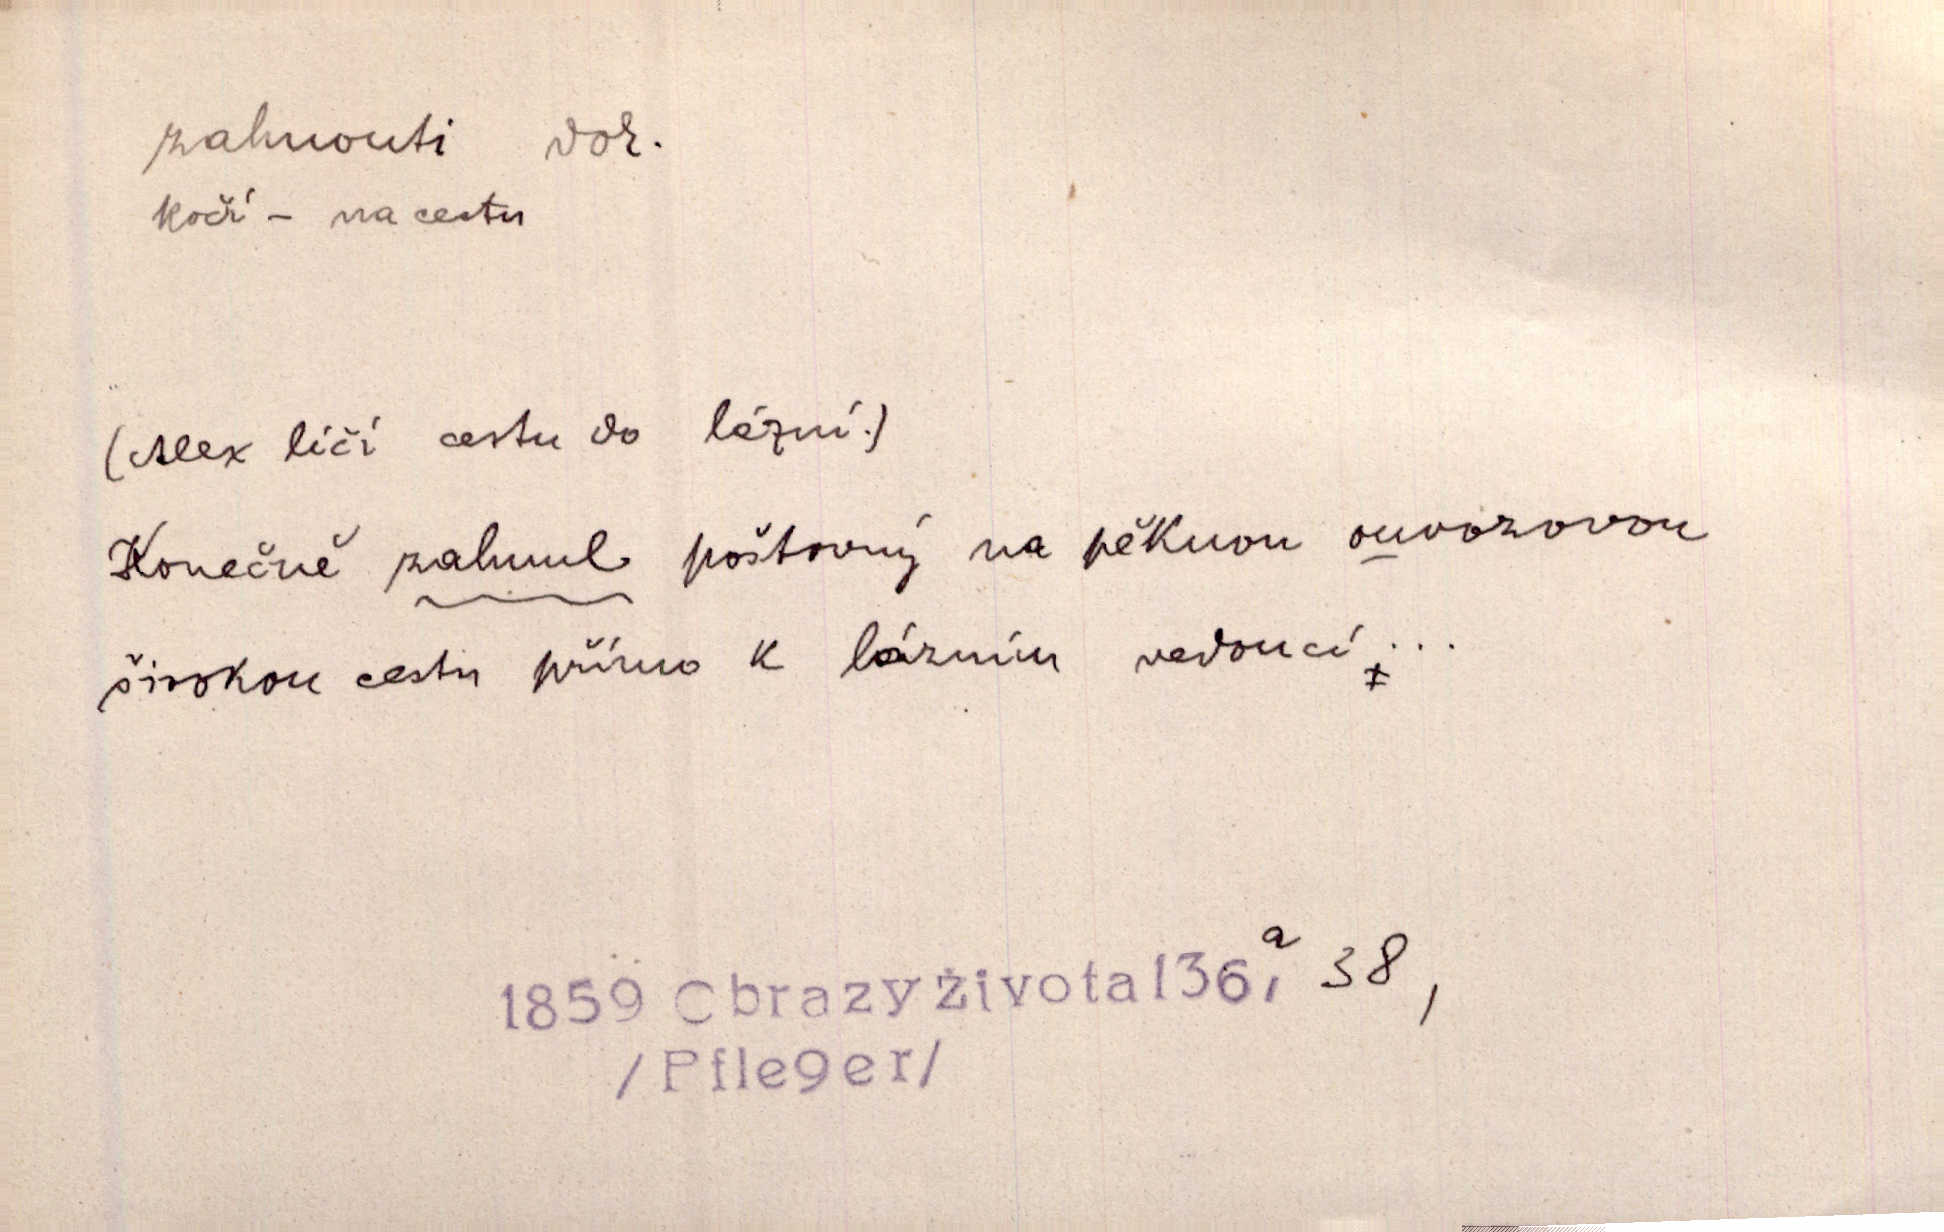 zahnouti dok.
kočí – na cestu
(Alex líčí cestu do lázní.)
Konečně zahnul poštovný na pěknou ouvozovou
širokou cestu přímo k lázním vedoucí...
1859 Obrazy života 136, a 38,
/Pfleger/